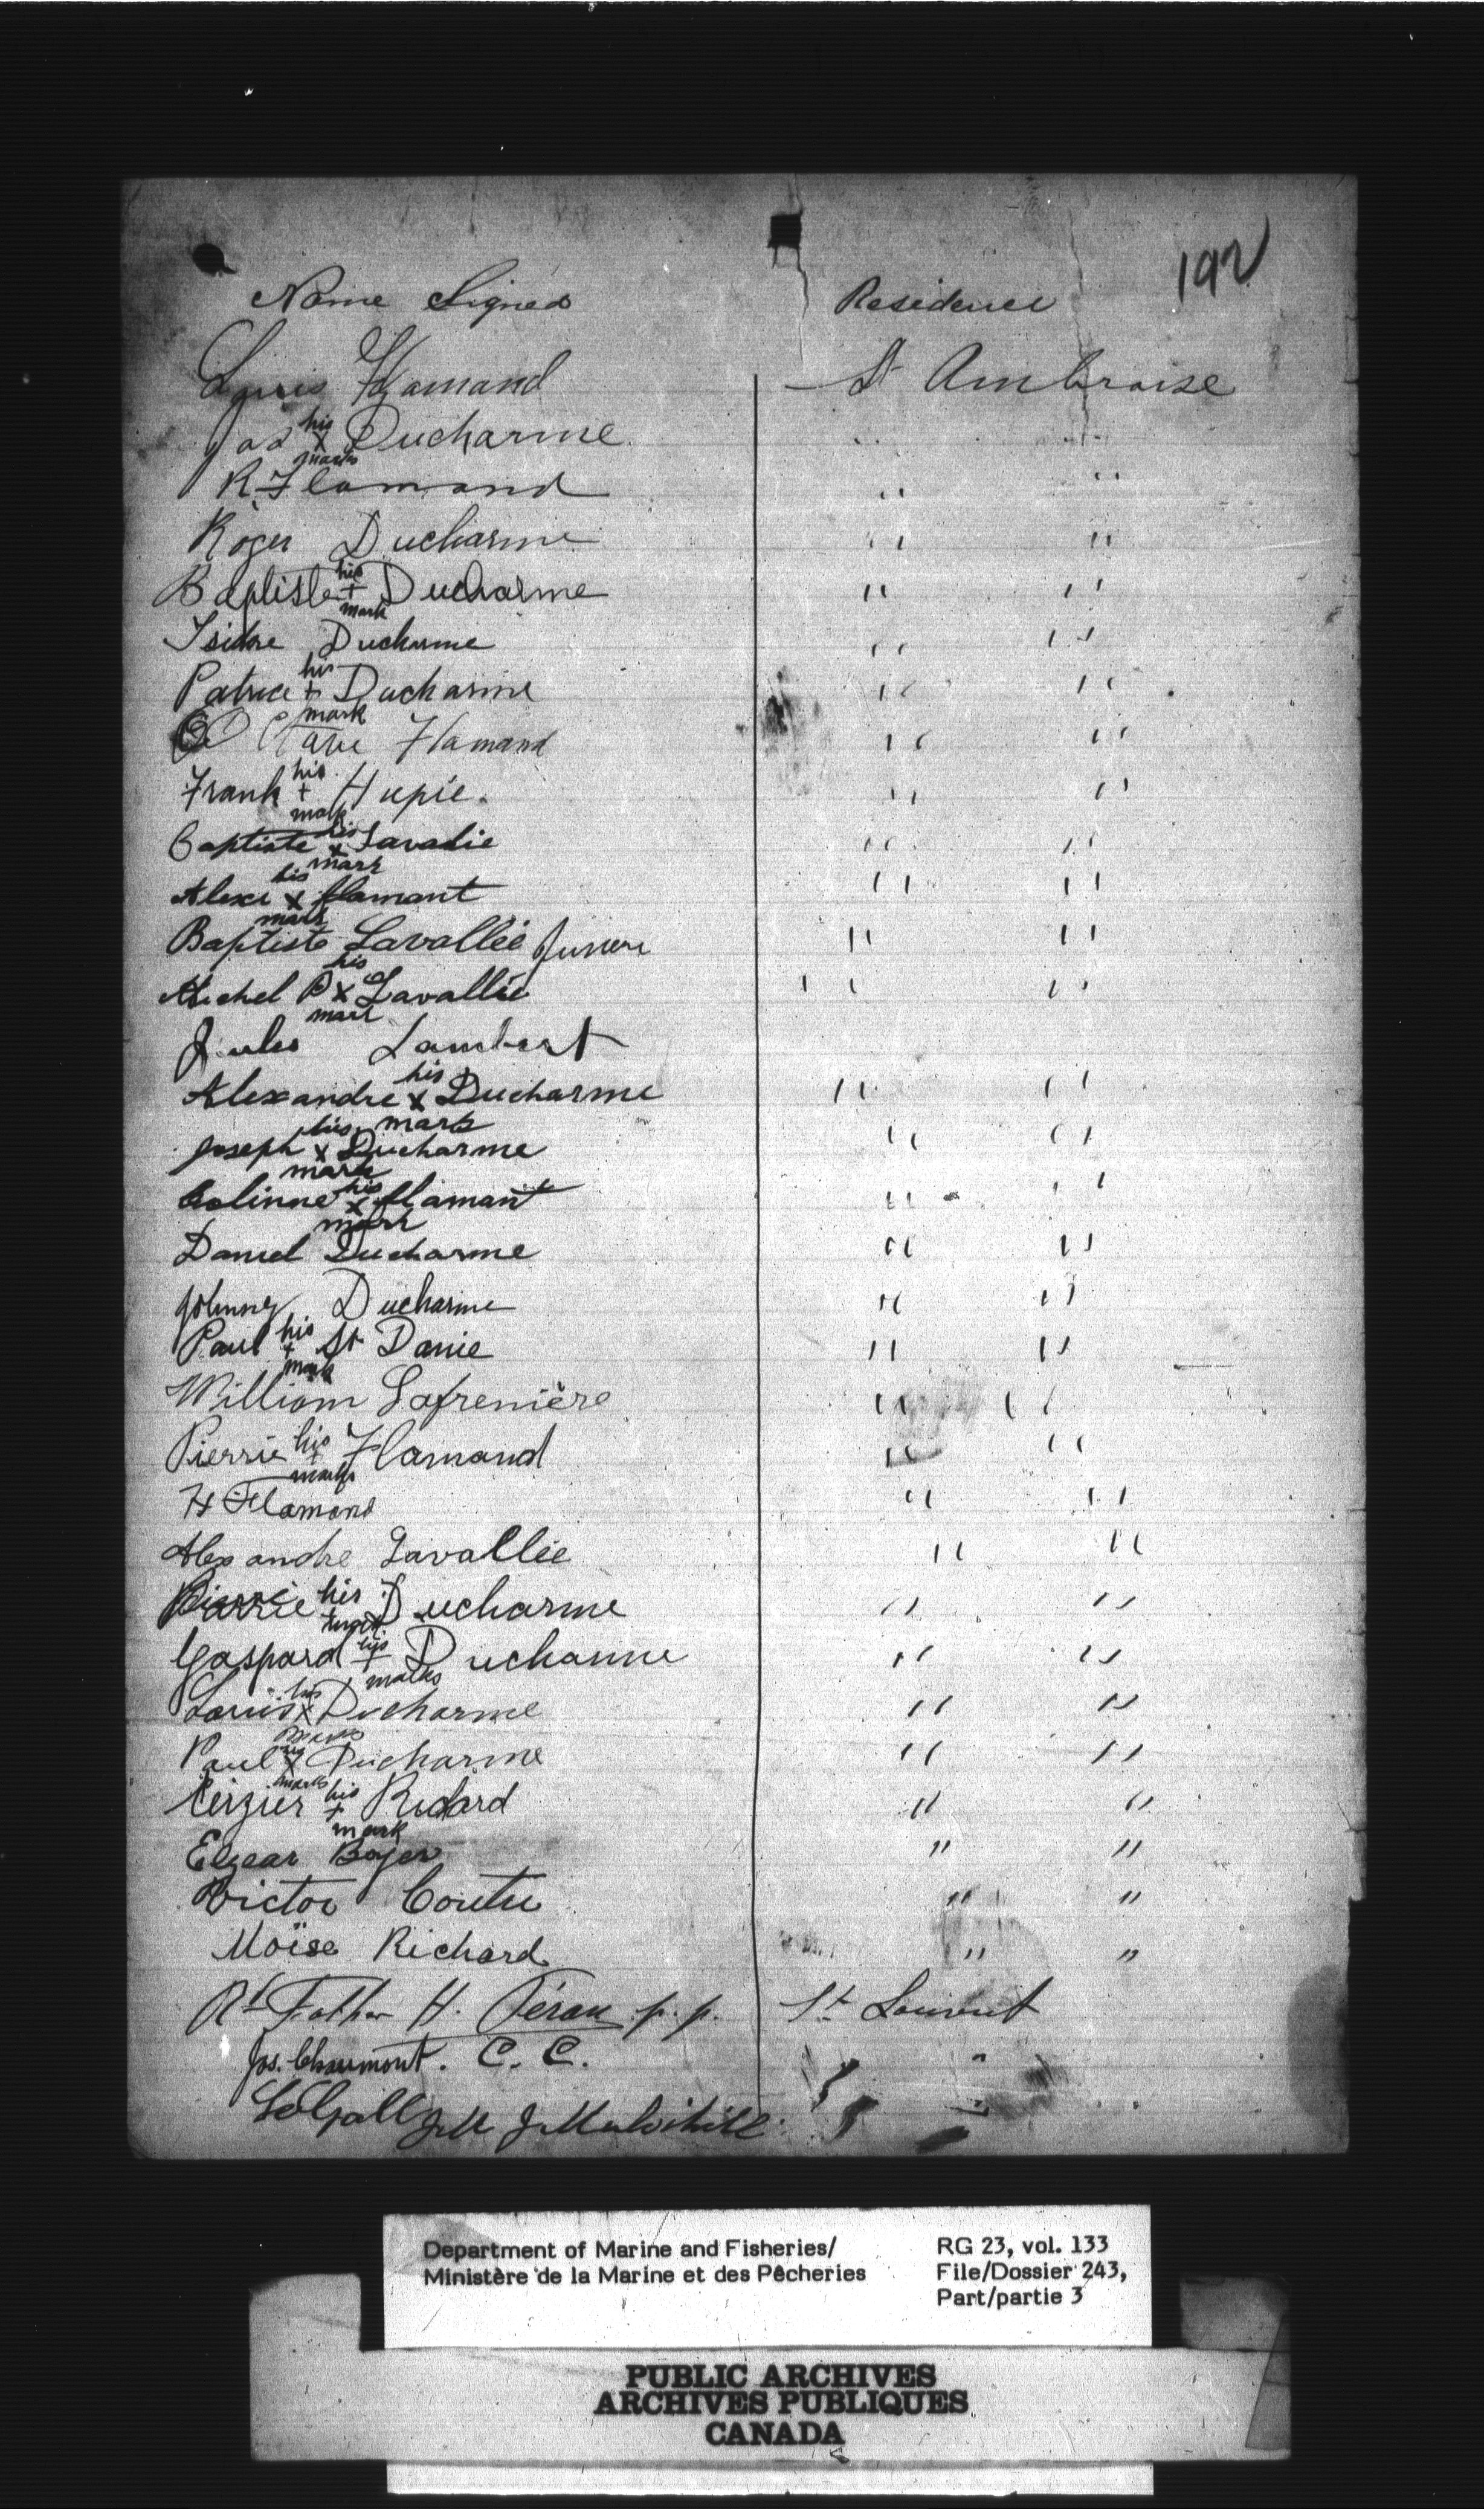 192
Name Signed Residence
Louis Flamand St Ambroise
Jos his x mark Ducharme " "
R Flamand " "
Roger Ducharme " "
Baptiste his + mark Ducharme " "
Isidre Ducharme " "
Patrice his + mark Ducharme " "
Flamand " "
Frank his + mark Hupie. " "
Baptiste his x mark Lavallie " "
Alexi his x mark flamant " "
Baptiste Lavallée Junior " "
Michel P his x mark Lavallée " "
Jules Lambert
Alexandre his x mark Ducharme " "
Joseph his x mark Ducharme " "
his x mark flamant " "
Daniel Ducharme " "
Johnny Ducharme " "
Paul his + mark St Danie " "
William Lafrenière " "
Pierrie his + mark Flamand " "
H Flamond " "
Alexandre Lavallée " "
Pierrie his + mark Ducharme " "
Gaspard his + marks Ducharme " "
Louis his x marks Ducharme " "
Paul his x marks Ducharme " "
his + mark Richard " "
Elzear Boyer " "
Victor Coutu " "
Moïse Richard " "
Rd Father H. Péran p.p. St Laurent
Jos. Chaumont. C. C. "
LeGall J.M J. Mulvihill "
Department of Marine and Fisheries/
Ministère de la Marine et des Pêcheries
RG 23, vol. 133
File/Dossier 243,
Part/partie 3
PUBLIC ARCHIVES
ARCHIVES PUBLIQUES
CANADA